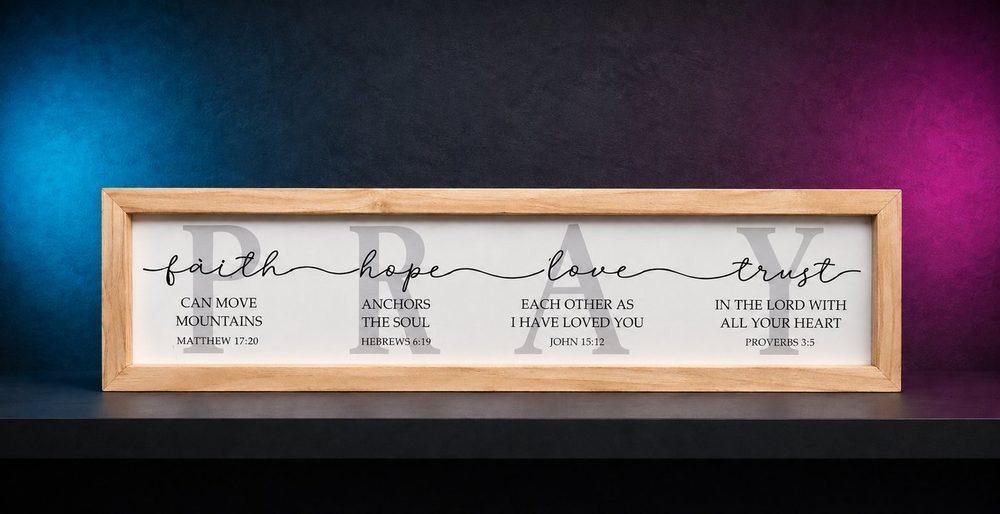 PRAY
faith hope love trust
CAN MOVE
MOUNTAINS
MATTHEW 17:20
ANCHORS
THE SOUL
HEBREWS 6:19
EACH OTHER AS
I HAVE LOVED YOU
JOHN 15:12
IN THE LORD WITH
ALL YOUR HEART
PROVERBS 3:5